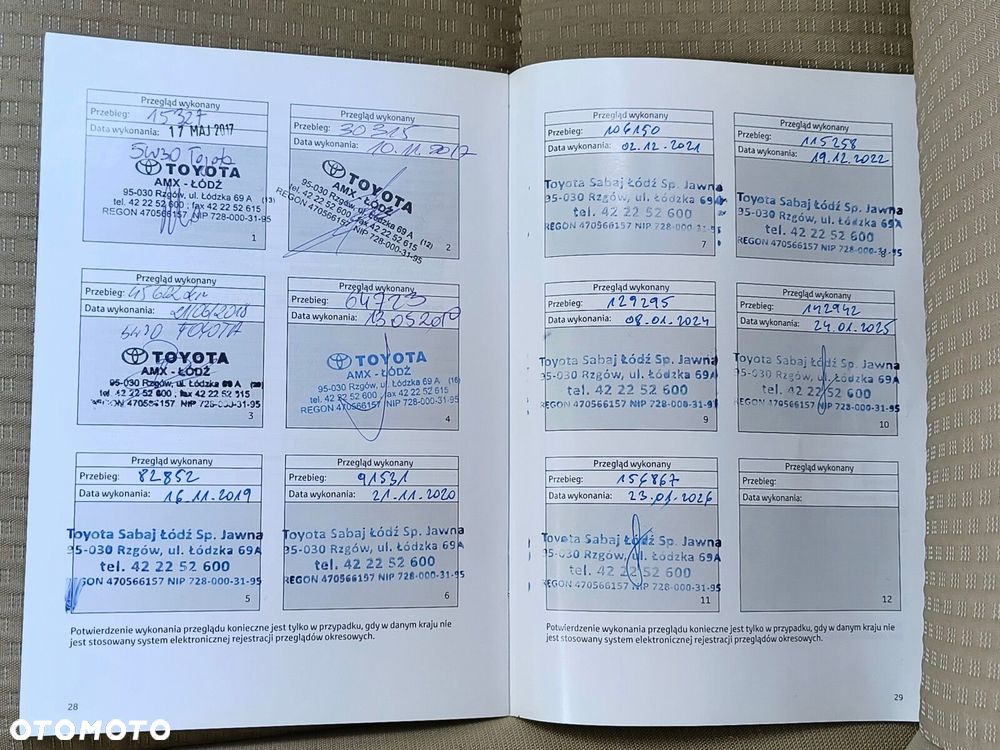 Przegląd wykonany
Przebieg: 15327
Data wykonania: 17 MAJ 2017
5W30 Toyota
TOYOTA
AMX - ŁÓDŹ
95-030 Rzgów, ul. Łódzka 69 A (13)
tel. 42 22 52 600, fax 42 22 52 615
REGON 470566157 NIP 728-000-31-95
1
Przegląd wykonany
Przebieg: 30315
Data wykonania: 10.11.2017
TOYOTA
AMX - ŁÓDŹ
95-030 Rzgów, ul. Łódzka 69 A (12)
tel. 42 22 52 600, fax 42 22 52 615
REGON 470566157 NIP 728-000-31-95
2
Przegląd wykonany
Przebieg:
Data wykonania: 21062018
5W30 TOYOTA
TOYOTA
AMX - ŁÓDŹ
95-030 Rzgów, ul. Łódzka 69 A
tel. 42 22 52 600, fax 42 22 52 615
REGON 470566157 NIP 728-000-31-95
3
Przegląd wykonany
Przebieg: 64723
Data wykonania: 13052019
TOYOTA
AMX - ŁÓDŹ
95-030 Rzgów, ul. Łódzka 69 A (16)
tel. 42 22 52 600, fax 42 22 52 615
REGON 470566157 NIP 728-000-31-95
4
Przegląd wykonany
Przebieg: 82852
Data wykonania: 16.11.2019
Toyota Sabaj Łódź Sp. Jawna
95-030 Rzgów, ul. Łódzka 69A
tel. 42 22 52 600
REGON 470566157 NIP 728-000-31-95
5
Przegląd wykonany
Przebieg: 91531
Data wykonania: 21.11.2020
Toyota Sabaj Łódź Sp. Jawna
95-030 Rzgów, ul. Łódzka 69A
tel. 42 22 52 600
REGON 470566157 NIP 728-000-31-95
6
Potwierdzenie wykonania przeglądu konieczne jest tylko w przypadku, gdy w danym kraju nie
jest stosowany system elektronicznej rejestracji przeglądów okresowych.
28
Przegląd wykonany
Przebieg: 106150
Data wykonania: 02.12.2021
Toyota Sabaj Łódź Sp. Jawna
95-030 Rzgów, ul. Łódzka 69A
tel. 42 22 52 600
REGON 470566157 NIP 728-000-31-95
7
Przegląd wykonany
Przebieg: 115258
Data wykonania: 19.12.2022
Toyota Sabaj Łódź Sp. Jawna
95-030 Rzgów, ul. Łódzka 69A
tel. 42 22 52 600
REGON 470566157 NIP 728-000-31-95
8
Przegląd wykonany
Przebieg: 129295
Data wykonania: 08.01.2024
Toyota Sabaj Łódź Sp. Jawna
95-030 Rzgów, ul. Łódzka 69A
tel. 42 22 52 600
REGON 470566157 NIP 728-000-31-95
9
Przegląd wykonany
Przebieg: 142942
Data wykonania: 24.01.2025
Toyota Sabaj Łódź Sp. Jawna
95-030 Rzgów, ul. Łódzka 69A
tel. 42 22 52 600
REGON 470566157 NIP 728-000-31-95
10
Przegląd wykonany
Przebieg: 156867
Data wykonania: 23.01.2026
Toyota Sabaj Łódź Sp. Jawna
95-030 Rzgów, ul. Łódzka 69A
tel. 42 22 52 600
REGON 470566157 NIP 728-000-31-95
11
Przegląd wykonany
Przebieg:
Data wykonania:
12
Potwierdzenie wykonania przeglądu konieczne jest tylko w przypadku, gdy w danym kraju nie
jest stosowany system elektronicznej rejestracji przeglądów okresowych.
29
OTOMOTO